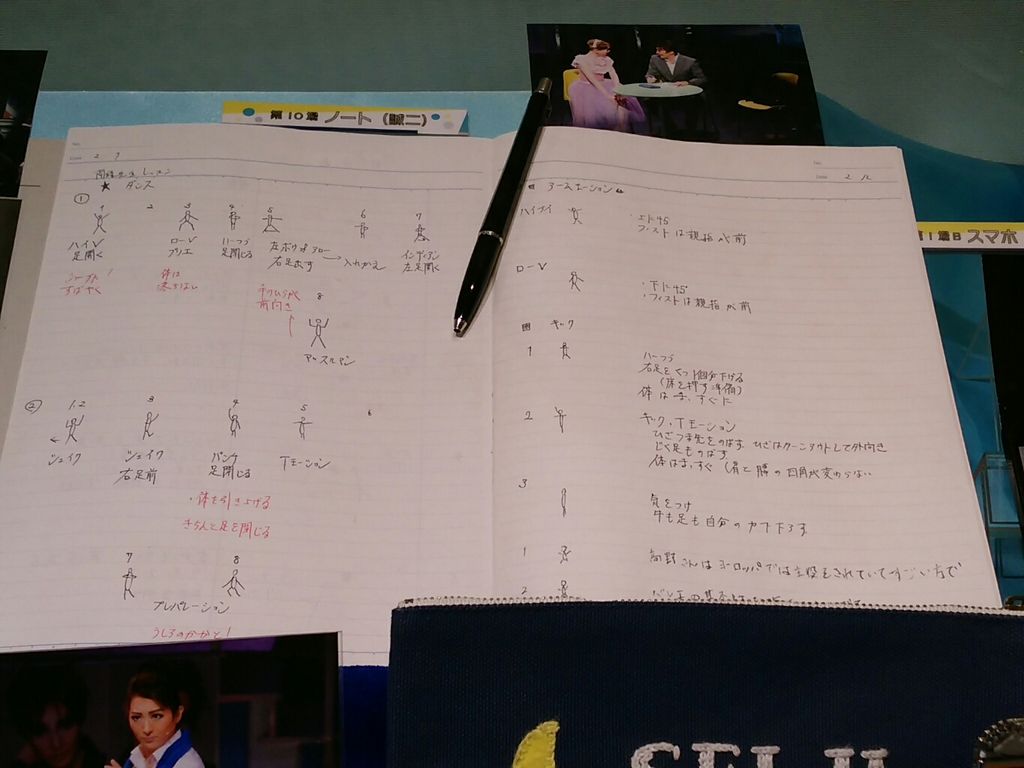 第10場 ノート (誠二)
第11場B スマホ
No.
Date 2 9
レッスン
★ ダンス
①
1 2 3 4 5 6 7
ハイV
足開く
ローV
プリエ
ハーつう
足閉じる
左ボウ&アロー
右足出す → 入れかえ
インディアン
左足開く
すばやく
体は
手のひらが
前向き
8
マッスルマン
②
1.2 3 4 5 6
シェイク
シェイク
右足前
パンチ
足閉じる
Tモーション
・体を引き上げる
きちんと足を閉じる
7 8
プレパレーション
うしろのかかと!
No.
Date 2 12
アームモーション
ハイブイ
・上に45
フィストは親指が前
ローV
・下に45
・フィストは親指が前
キック
1
右足を 1個分下げる
(床を押す準備)
体はまっすぐに
2
キック、Tモーション
ひざつま先をのばす ひざはターンアウトして外向き
じく足ものばす
体はまっすぐ (肩と腰の四角が変わらない
3
気をつけ
手も足も自分の力で下ろす
1
さんはヨーロッパでは主役をされていてすごい方で
2
SEIJI